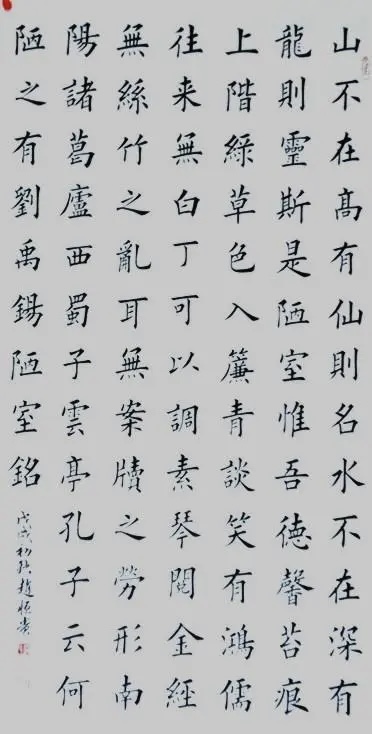 山不在髙有仙則名水不在深有
龍則靈斯是陋室惟吾德馨苔痕
上階綠草色入簾青談笑有鴻儒
往来無白丁可以調素琴閱金經
無絲竹之亂耳無案牘之勞形南
陽諸葛廬西蜀子雲亭孔子云何
陋之有劉禹錫陋室銘
戊戌初秋趙恒貴